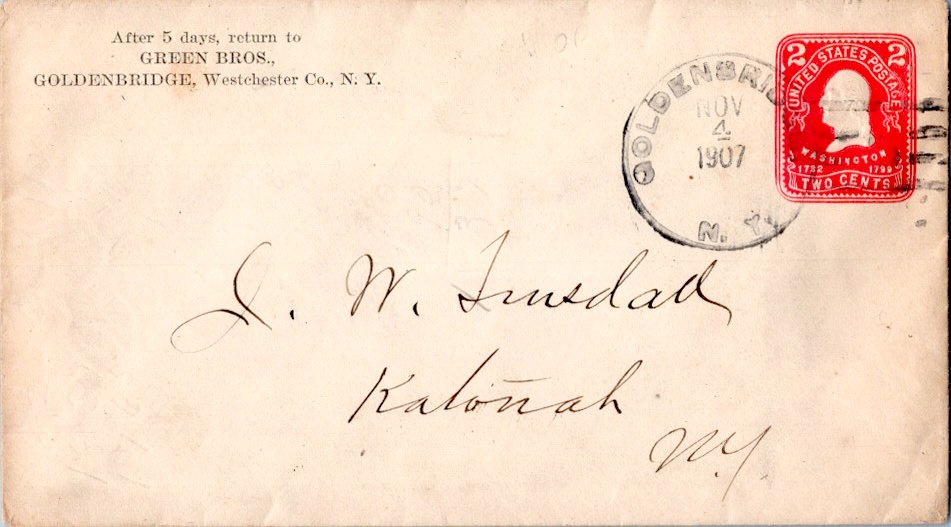 After 5 days, return to
GREEN BROS.,
GOLDENBRIDGE, Westchester Co., N. Y.
GOLDENBRI
NOV
4
1907
N. Y.
2 2
UNITED STATES POSTAGE
WASHINGTON
1732 1799
TWO CENTS
J. W.
Katonah
N.Y.